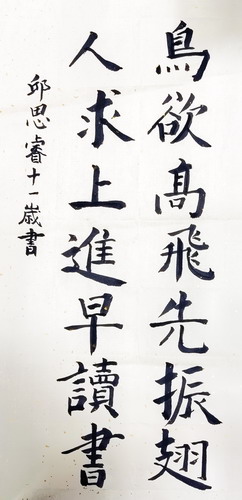 鳥欲高飛先振翅
人求上進早讀書
邱思睿十一歲書